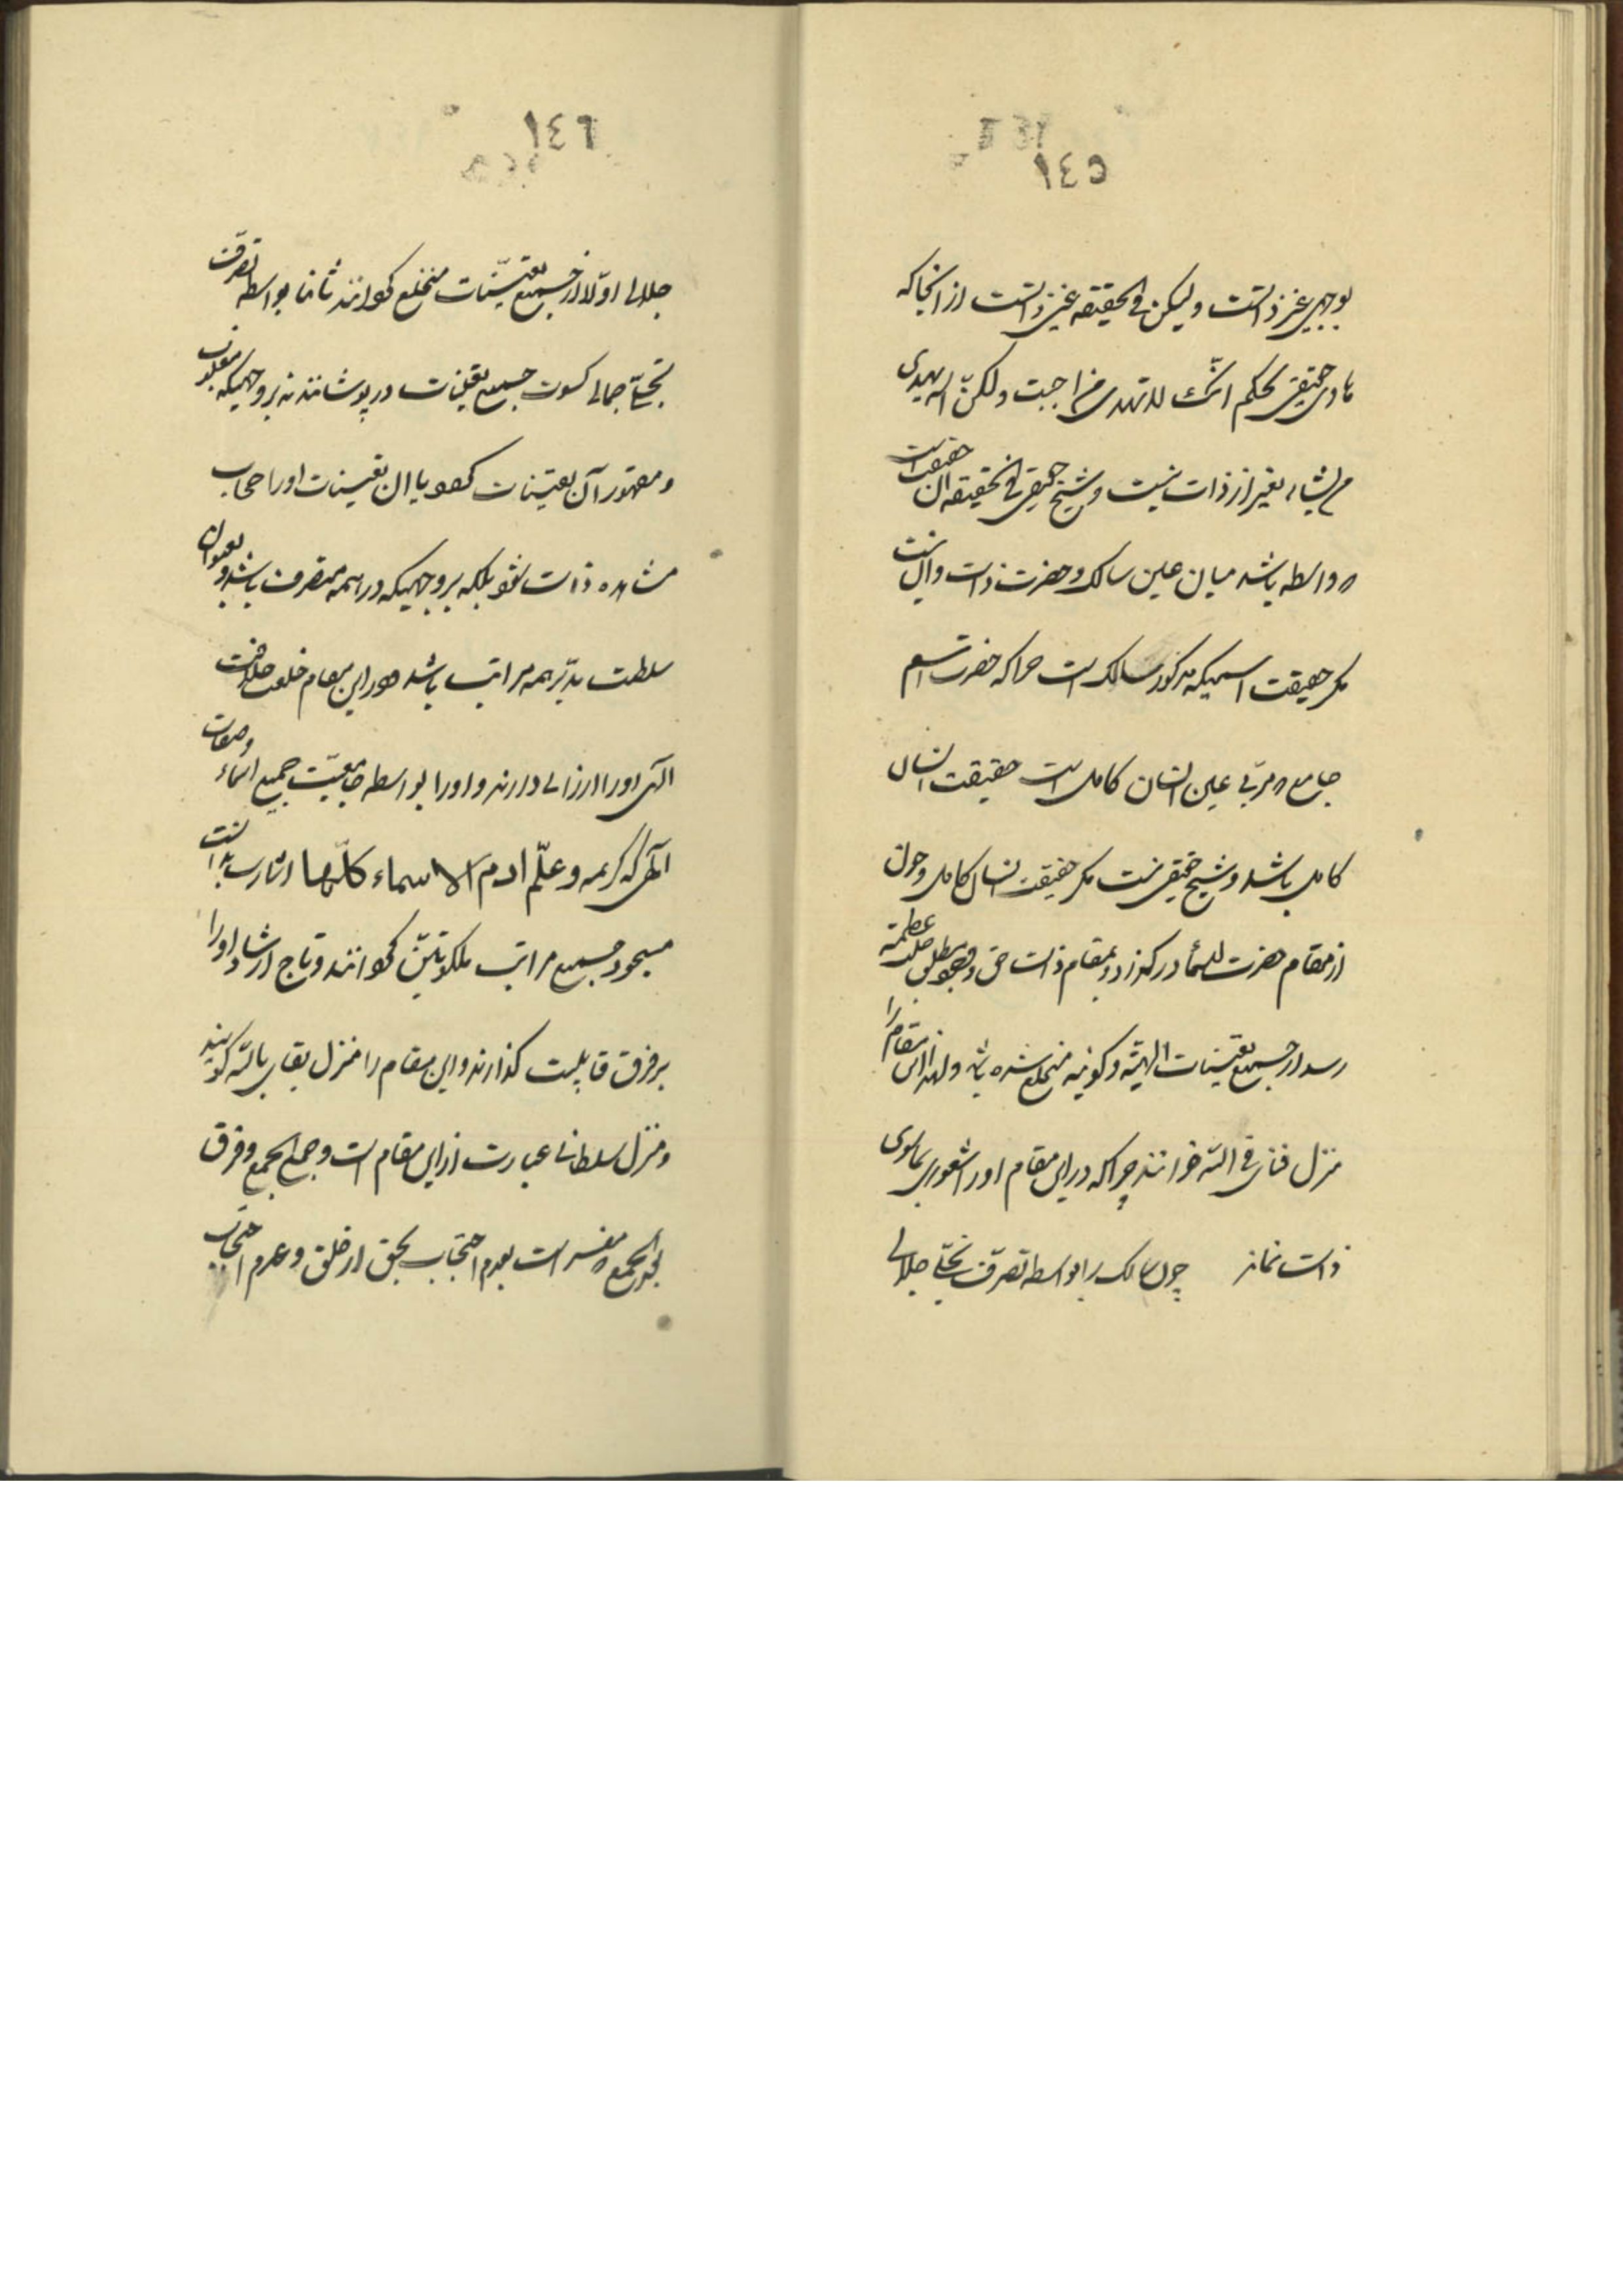 ١٤٥
بوجهی غیر ذاتست ولیکن فی الحقیقه غیر ذاتست از انجا که
هادی حقیقی بحکم انّک لا تهدی من احببت ولکنّ الله یهدی
من یشاء بغیر از ذات نیست و شیخ حقیقی فی الحقیقه ان حقیقت است
که واسطه باشد میان عین سالک و حضرت ذات و ان نیست
مکر حقیقت اسمیکه مذکور سالک است چرا که حضرت اسم
جامع که مربّی عین انسان کامل است حقیقت انسان
کامل باشد و شیخ حقیقی نیست مکر حقیقت انسان کامل و چون
از مقام حضرت اسما در کذرد و بمقام ذات حق و وجود مطلق جلت عظمته
رسد از جمیع تعیّنات الهیّه و کونیه منخلع شده باشد و لهذا این مقام را
منزل فنای فی الله خوانند چرا که در این مقام او را شعوری بماسوی
ذات نماند چون سالک را بواسطه تصرّف تجلّی جلالی
١٤٦
جلالی اوّلا از جمیع تعیّنات منخلع کردانند ثانیا بواسطه تصرّف
تجلّی جمالی کسوت جمیع تعینات در پوشانند نه بر وجهیکه مغلوب
و مقهور آن تعیّنات کردد یا ان تعینات او را حجاب
مشاهده ذات شود بلکه بر وجهیکه در همه متصرف باشد و بعنوان
سلطنت مدبّر همه مراتب باشد و در این مقام خلعت خلافت
الهی او را ارزانی دارند و او را بواسطه جامعیّت جمیع اسماء وصفات
الهی که کریمه و علّم ادم الاسماء کلّها اشارت بدانست
مسجود جمیع مراتب ملکوتیّین کردانند و تاج ارشاد او را
بر فرق قابلیت کذارند و این مقام را منزل بقای بالله کویند
و منزل سلطانی عبارت از این مقام است و جمع الجمع و فرق
بعد الجمع که مفسر است بعدم احتجاب بحق از خلق و عدم احتجاب